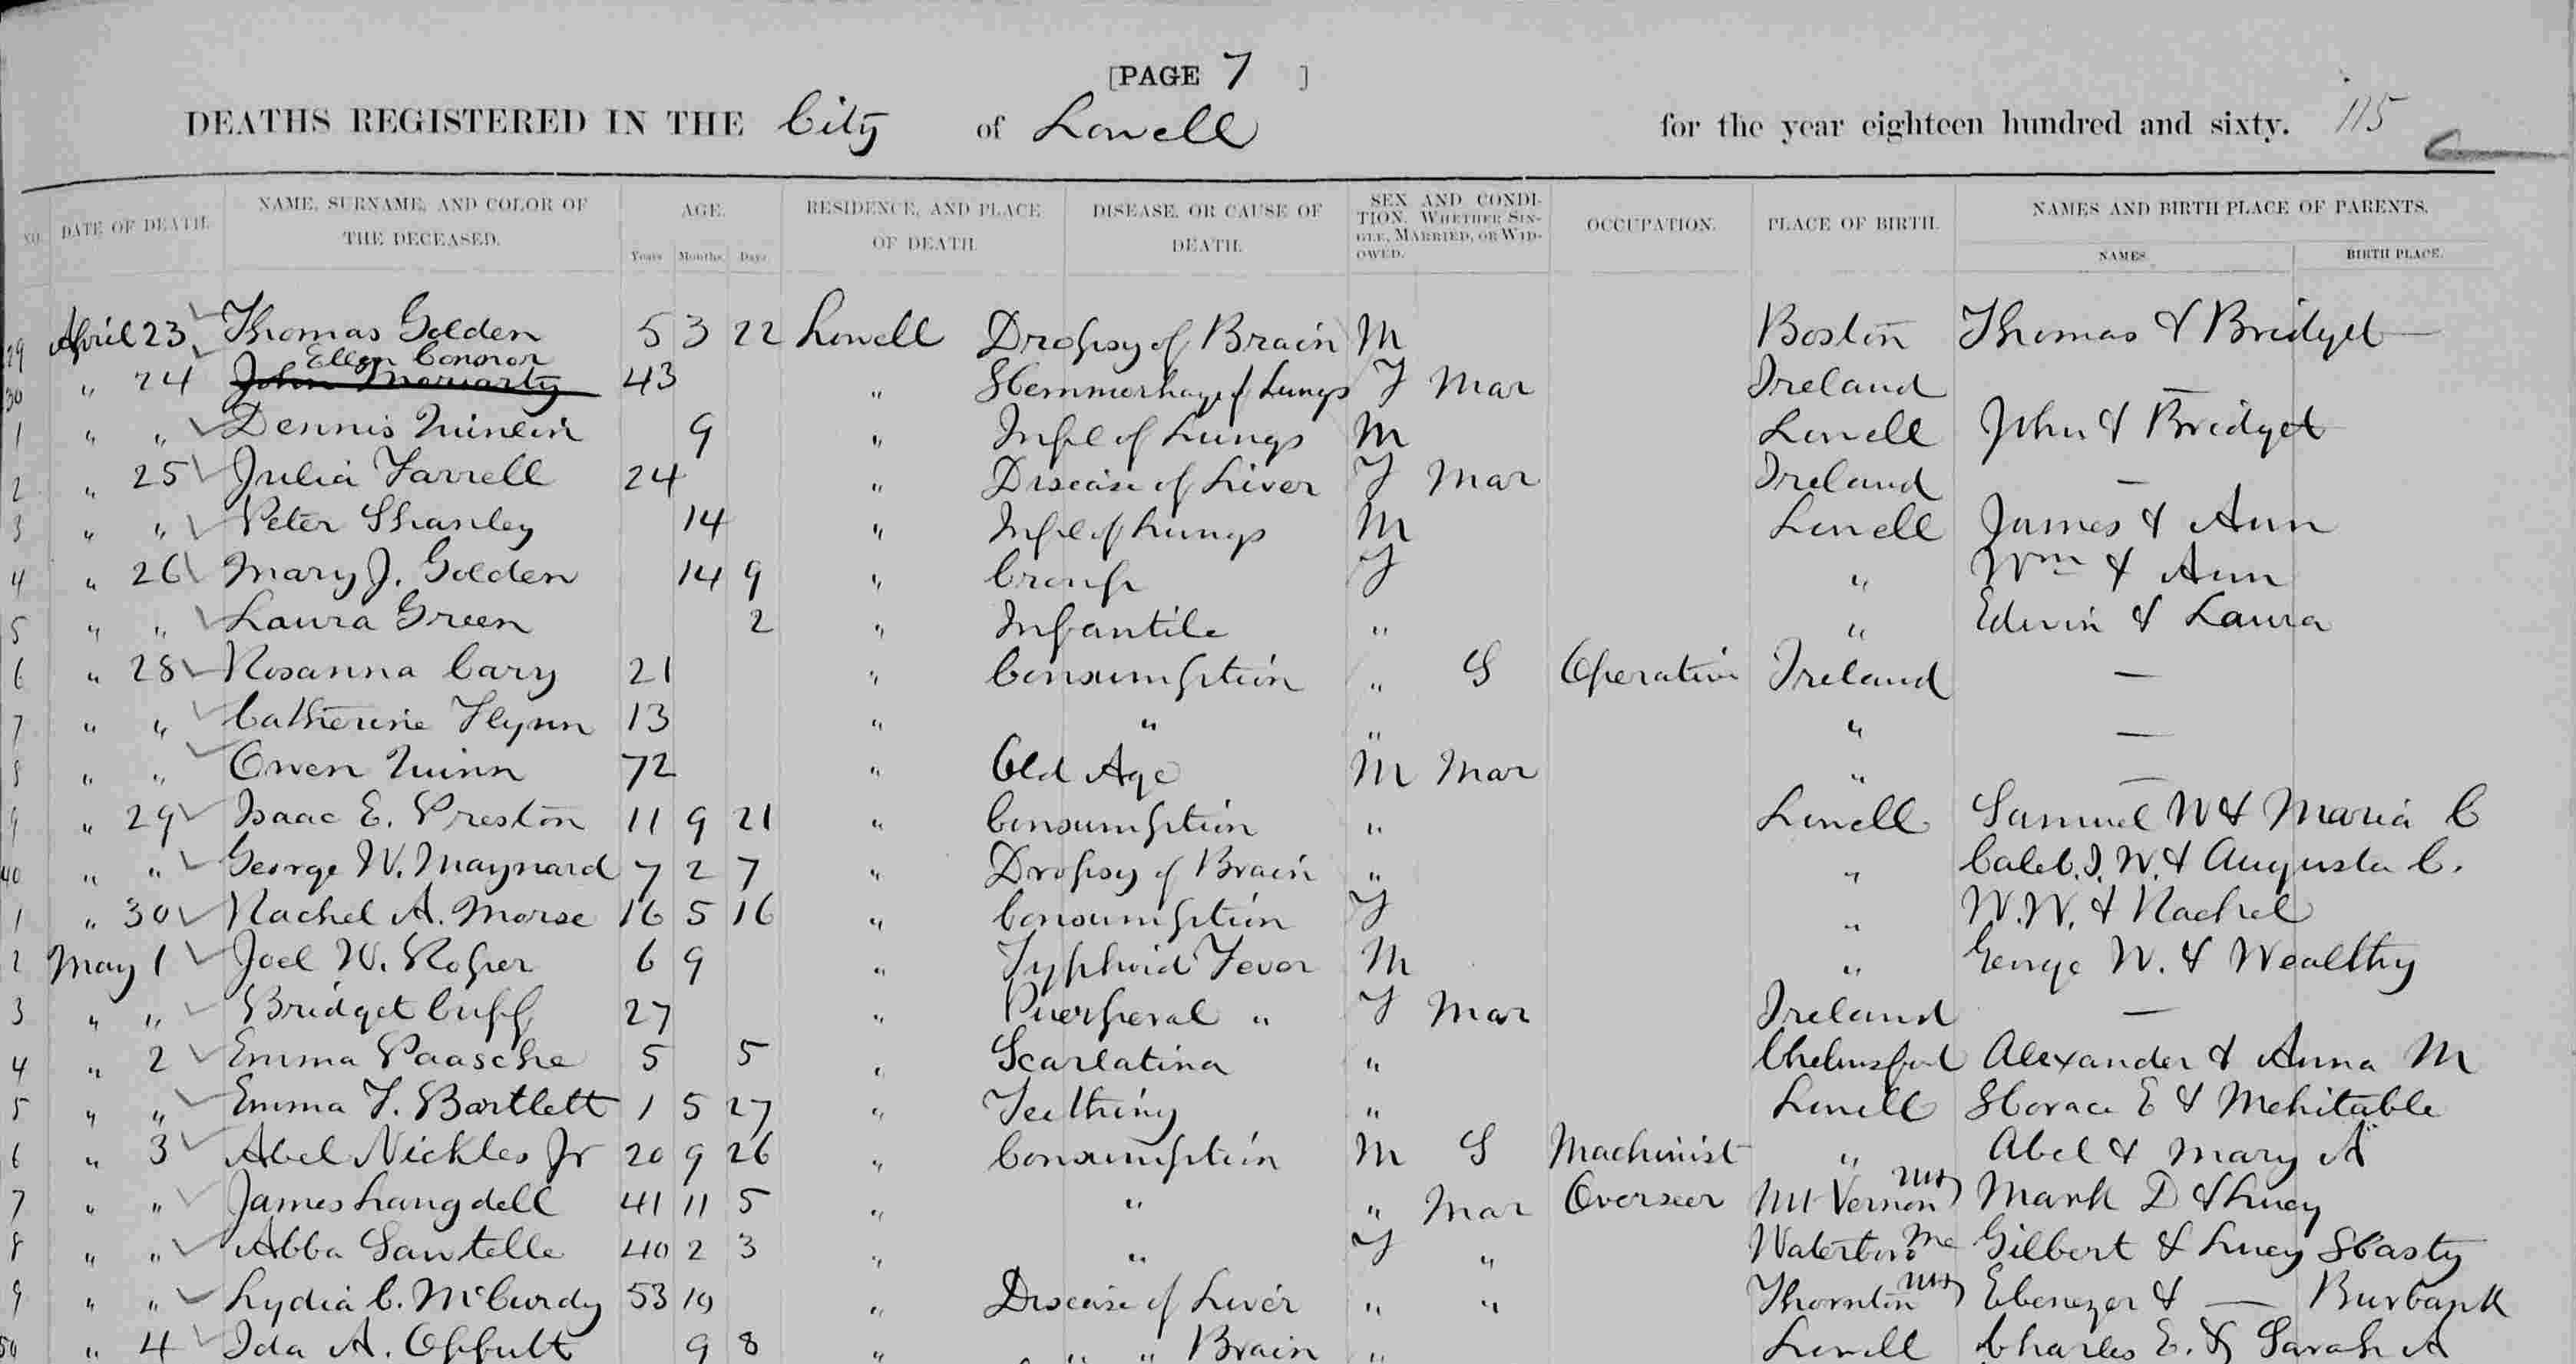 [PAGE 7 ]
DEATHS REGISTERED IN THE City of Lowell for the year eighteen hundred and sixty. 115
NO. DATE OF DEATH. NAME, SURNAME, AND COLOR OF THE DECEASED. AGE. Years Months. Days RESIDENCE, AND PLACE OF DEATH. DISEASE, OR CAUSE OF DEATH. SEX AND CONDITION. WHETHER SINGLE, MARRIED, OR WIDOWED. OCCUPATION. PLACE OF BIRTH. NAMES AND BIRTH PLACE OF PARENTS. NAMES. BIRTH PLACE.
29 April 23 Thomas Golden 5 3 22 Lowell Dropsy of Brain M Boston Thomas & Bridget
Ellen Connor
30 " 24 John Moriarty 43 " Hemmorhage of Lungs F Mar Ireland —
1 " " Dennis Quinlin 9 " Infl of Lungs M Lowell John & Bridget
2 " 25 Julia Farrell 24 " Disease of Liver F Mar Ireland —
3 " " Peter Shanley 14 " Infl of Lungs M Lowell James & Ann
4 " 26 Mary J. Golden 14 9 " Croup F " Wm & Ann
5 " " Laura Green 2 " Infantile " " Edwin & Laura
6 " 28 Rosanna Cary 21 " Consumption " S Operative Ireland —
7 " " Catherine Flynn 13 " " " " —
8 " " Owen Quinn 72 " Old Age M Mar " —
9 " 29 Isaac E. Preston 11 9 21 " Consumption " Lowell Samuel W & Maria C
40 " " George W. Maynard 7 2 7 " Dropsy of Brain " " Caleb. J. W. & Augusta C.
1 " 30 Rachel A. Morse 16 5 16 " Consumption F " W. W. & Rachel
2 May 1 Joel W. Roper 6 9 " Typhoid Fever M " George W. & Wealthy
3 " " Bridget Cuff 27 " Puerperal " F Mar Ireland —
4 " 2 Emma Paasche 5 5 " Scarlatina " Chelmsford Alexander & Anna M
5 " " Emma F. Bartlett 1 5 27 " Teething " Lowell Horace E & Mehitable
6 " 3 Abel Nickles Jr 20 9 26 " Consumption M S Machinist " Abel & Mary A
7 " " James Langdell 41 11 5 " " " Mar Overseer Mt Vernon NH Mark D & Lucy
8 " " Abba Sawtelle 40 2 3 " " F " Waterboro Me Gilbert & Lucy Hasty
9 " " Lydia C. McCurdy 53 10 " Disease of Liver " " Thornton NH Ebenezer & — Burbank
50 " 4 Ida A. Offutt 9 8 " " " Brain " Lowell Charles E. & Sarah A